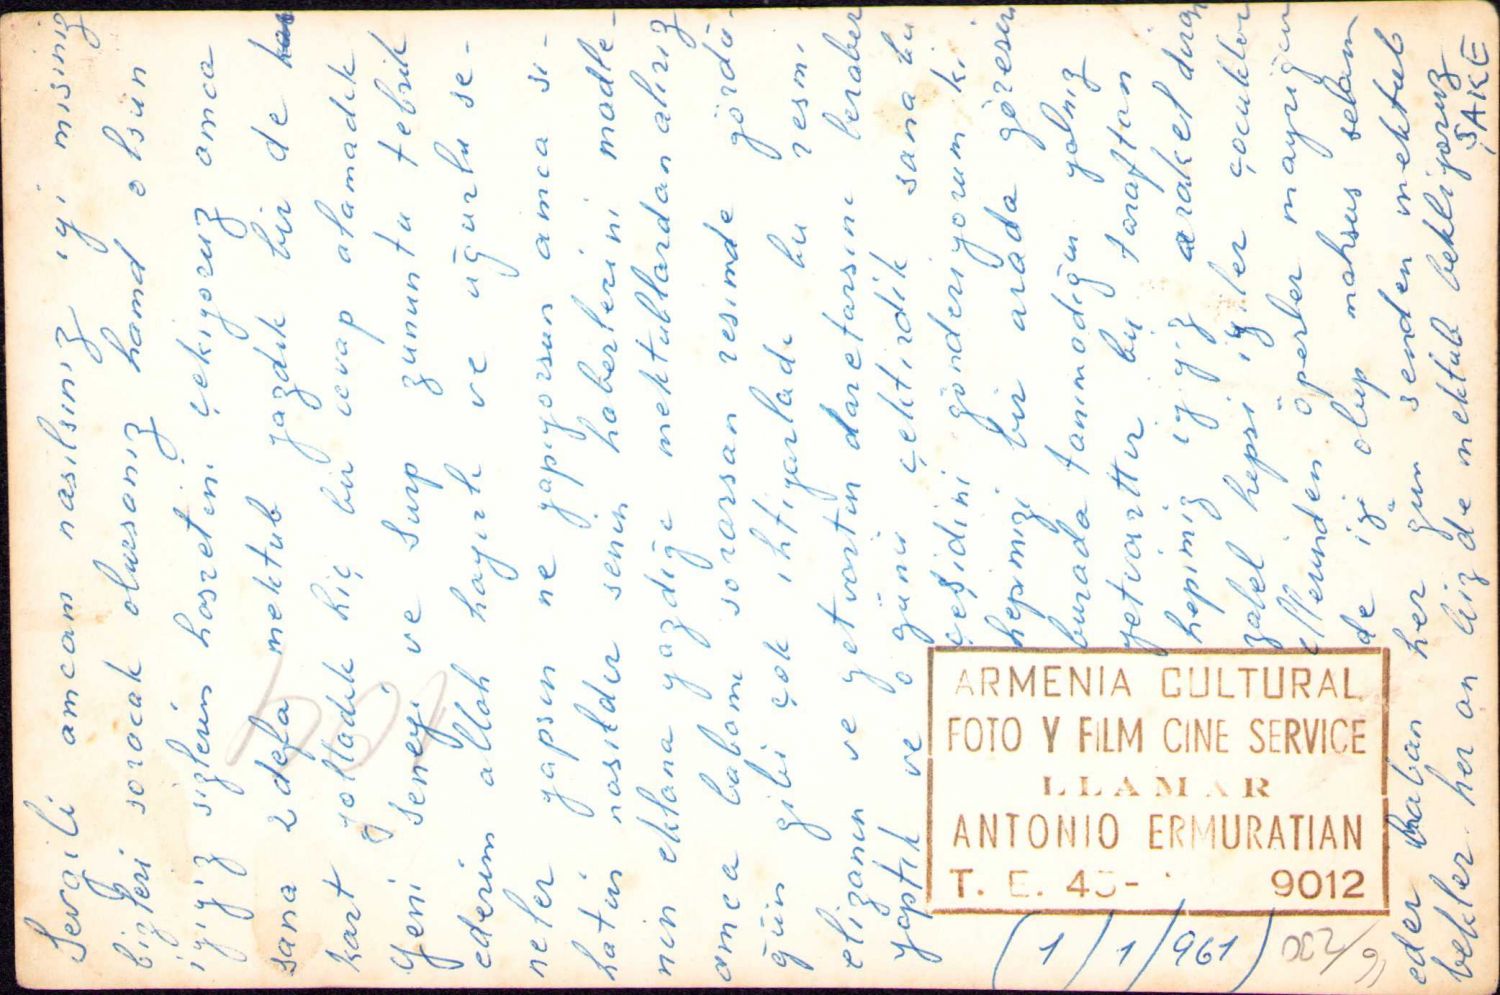 Sevgili amcam nasılsınız iyi misiniz
bizleri soracak olursanız hamd olsun
iyiyiz sizlerin hasretini çekiyoruz ama
sana 2 defa mektub yazdık bir de
kart yolladık hiç bir cevap alamadık
Yeni seneyi ve Surp zununtu tebrik
ederim allah hayırlı ve uğurlu se-
neler yapsın ne yapıyorsun amca si-
hatın nasıldır senin haberlerini madle-
nin oktana yazdığı mektublardan alırız
amca babamı sorarsan resimde gördü-
ğün gibi çok ihtiyarladı bu resmi
elizanın ve yetvartın daretarsını beraber
yaptık ve o günü çektirdik sana bu
çeşidini gönderiyorum ki
hepimizi bir arada göresin
burada tanımadığın yalnız
yetvarttır bu taraftan
hepimiz iyiyiz araket dıran
zabel hepsi iyiler çocukları
ellerinden öperler mayrigin
de iyi olup mahsus selam
eder baban her gün senden mektub
bekler her an biz de mektub bekliyoruz
ŞAKE
ARMENIA CULTURAL
FOTO Y FILM CINE SERVICE
LLAMAR
ANTONIO ERMURATIAN
T. E. 45- 9012
(1/1/961)